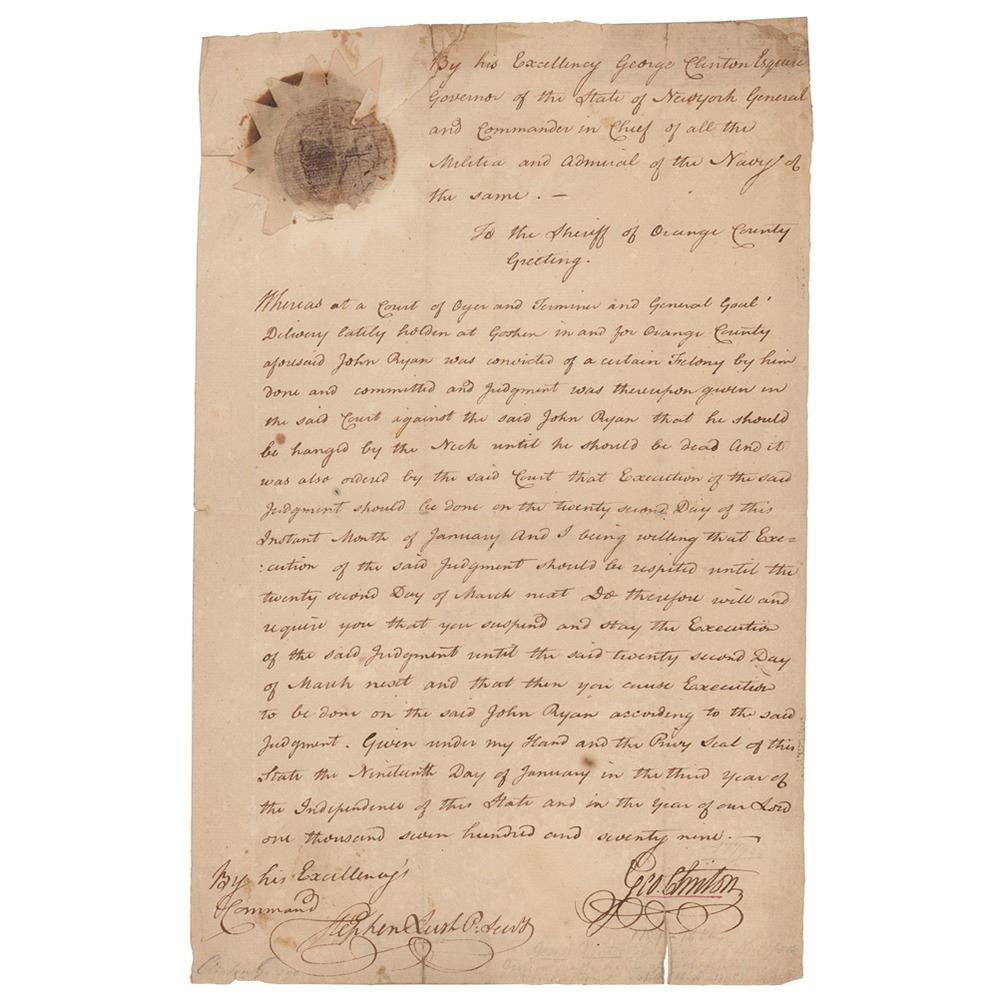 By his Excellency George Clinton Esquire
Governor of the State of Newyork General
and Commander in Chief of all the
Militia and Admiral of the Navy of
the same. —
To the Sheriff of Orange County
Greeting.
Whereas at a Court of Oyer and Terminer and General Goal
Delivery lately holden at Goshen in and for Orange County
aforesaid John Ryan was convicted of a certain Felony by him
done and committed and Judgment was thereupon given in
the said Court against the said John Ryan that he should
be hanged by the Neck until he should be dead And it
was also ordered by the said Court that Execution of the said
Judgment should be done on the twenty second Day of this
Instant Month of January And I being willing that Exe=
:cution of the said Judgment should be respited until the
twenty second Day of March next Do therefore will and
require you that you suspend and stay the Execution
of the said Judgment until the said twenty second Day
of March next and that then you cause Execution
to be done on the said John Ryan according to the said
Judgment. Given under my Hand and the Privy Seal of this
State the Nineteenth Day of January in the third Year of
the Independence of this State and in the Year of our Lord
one thousand seven hundred and seventy nine. —
By his Excellency's
Command
Geo. Clinton
Stephen Lush P. Secry
Clinton G.